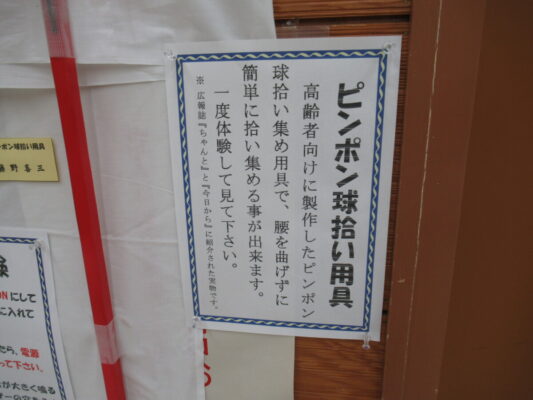 ピンポン球拾い用具
高齢者向けに製作したピンポン
球拾い集め用具で、腰を曲げずに
簡単に拾い集める事が出来ます。
一度体験して見て下さい。
※ 広報誌『ちゃんと』と『今日から』に紹介された実物です。
ポン球拾い用具
野喜三
ONにして
に入れて
たら、電源
って下さい。
が大きく鳴る